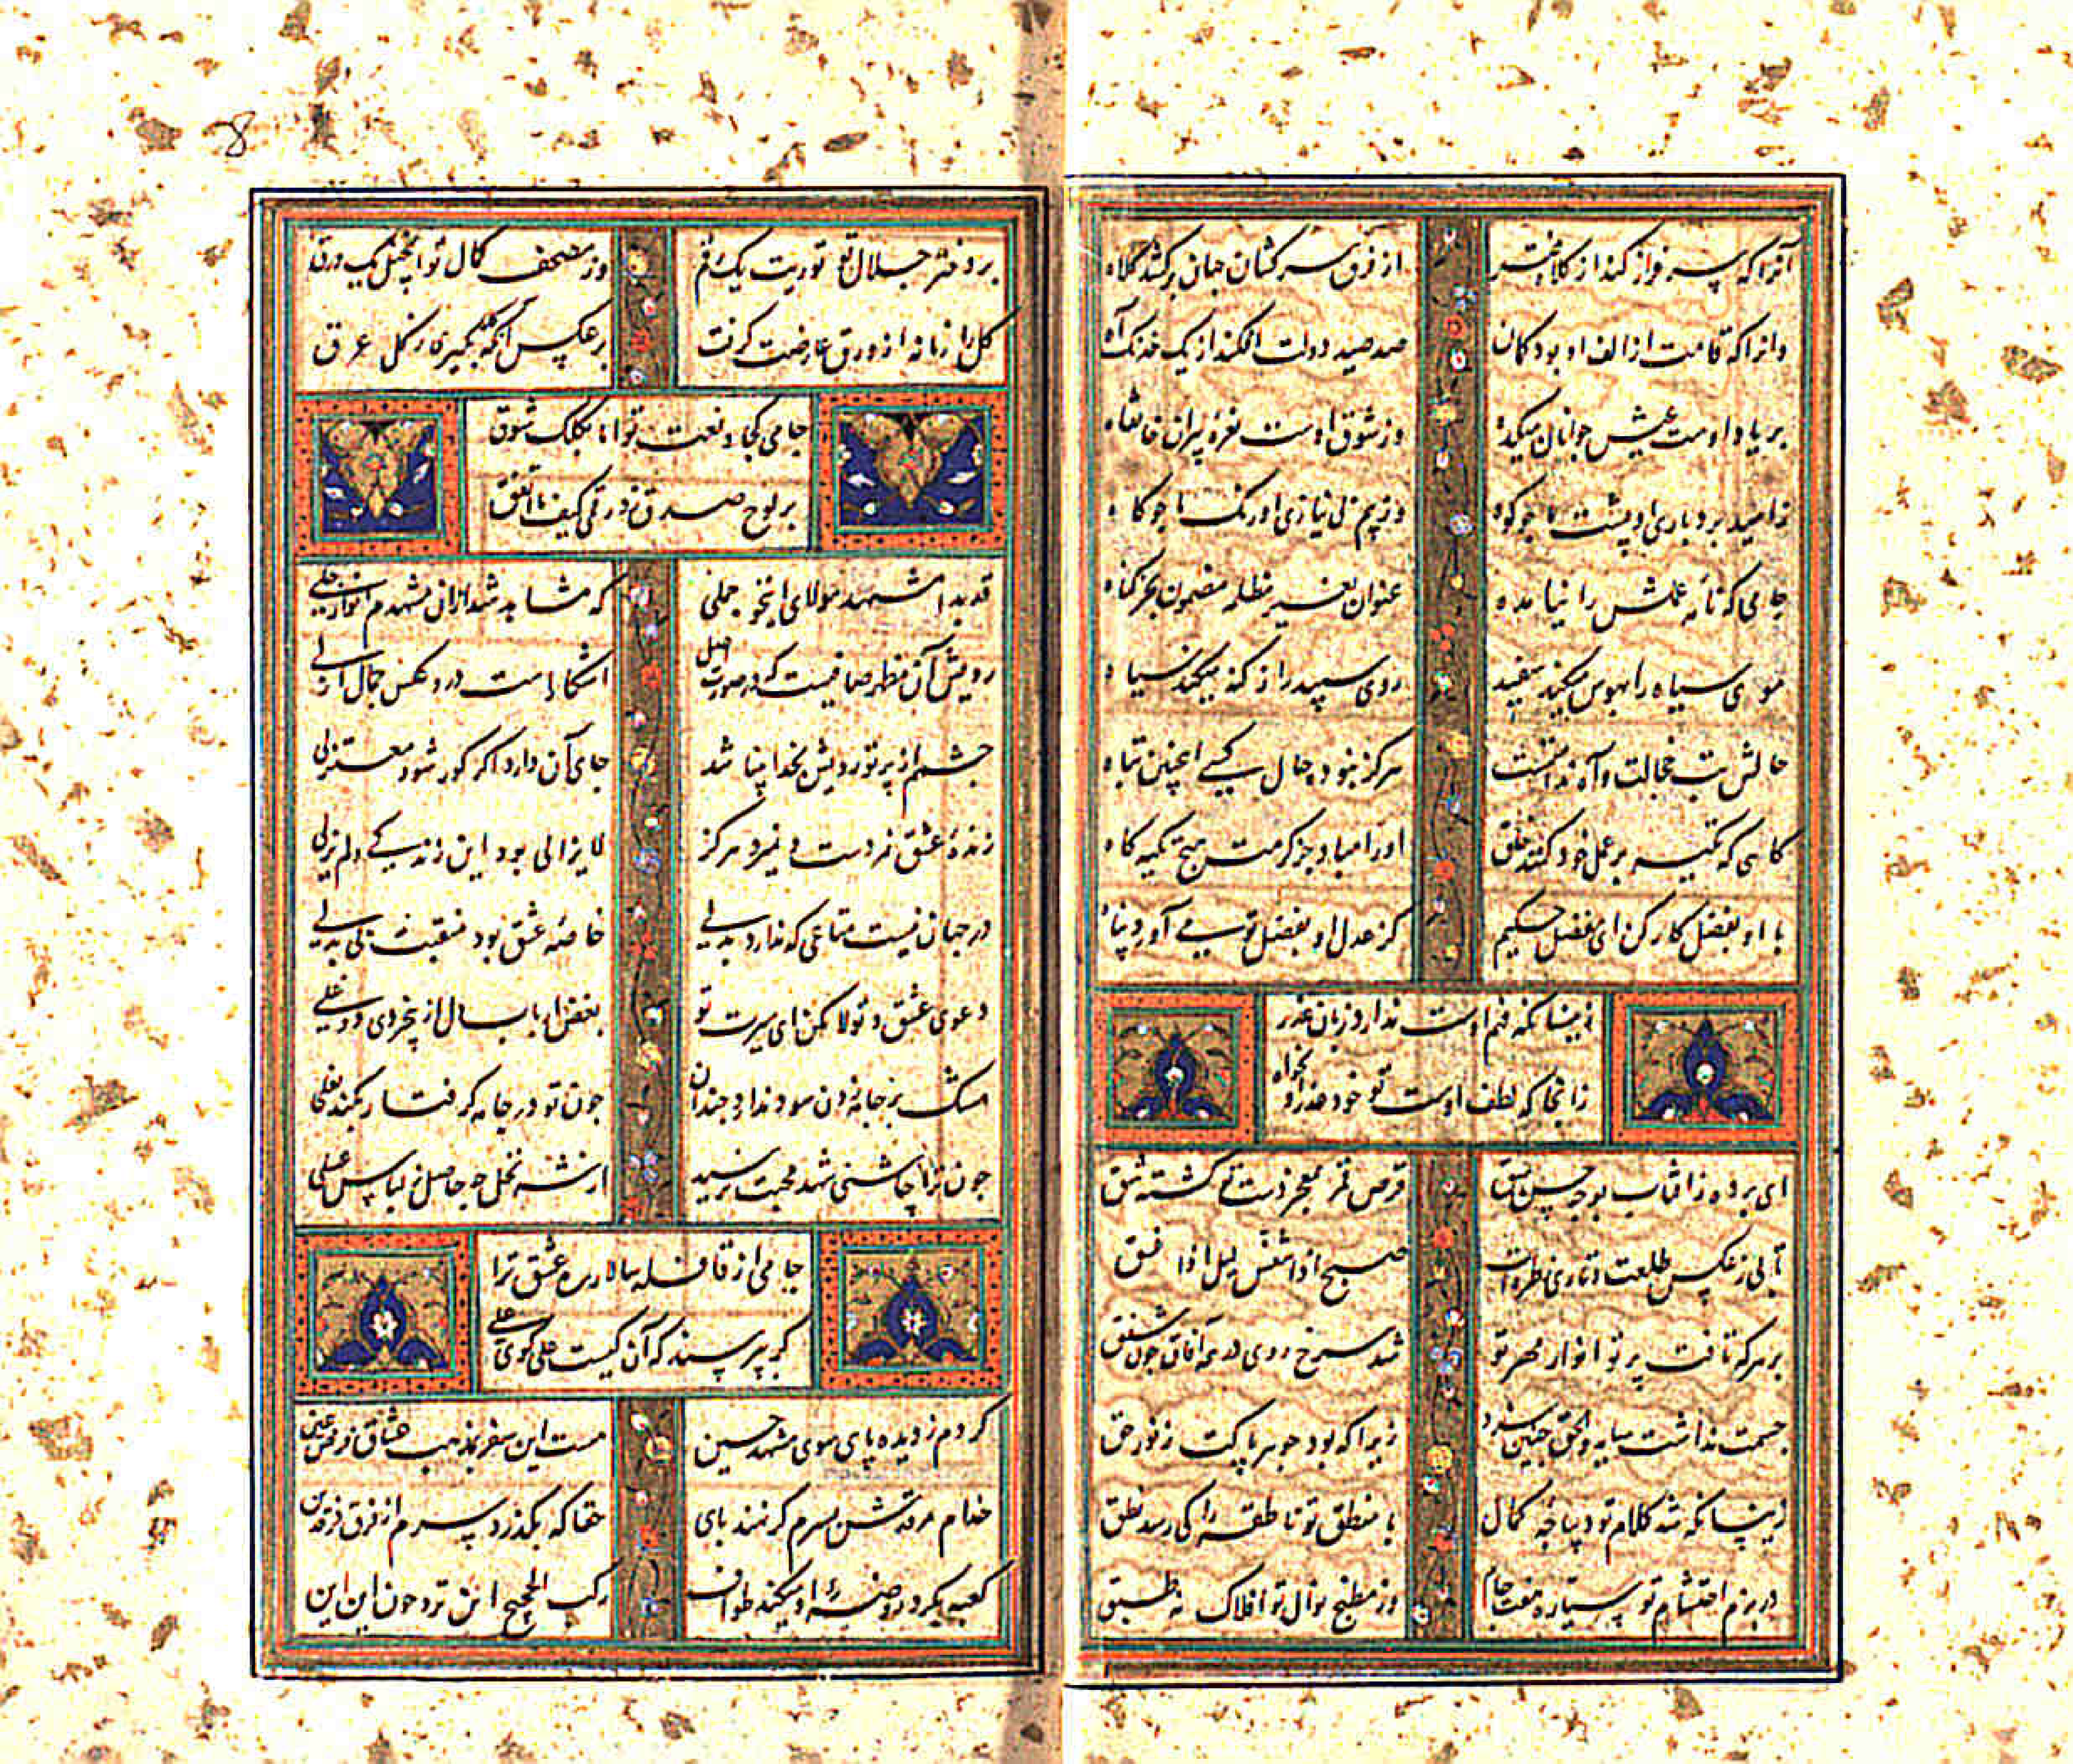 آنرا که سرفراز کند از کلاه فقر از فرق سرکشان جهان برکشد کلاه
وانرا که قامت از الف او بود کمان صد صید دولت افکند از یک خدنگ آه
بر یاد اوست عیش جوانان میکده وز شوق اوست نعرهٔ پیران خانقاه
زامید بردباری او پشت ما چو کوه وز بیم بی نیازی او رنگ ما چو کاه
جامی که نامهٔ عملش را نیامده عنوان بغیر مظلمه مضمون بجز گناه
موی سیاه را بهوس میکند سفید روی سپید را ز گنه میکند سیاه
حالش تب خجالت و آه ندامتست هرگز نبود حال کسی اینچنین تباه
گاهی که تکیه بر عمل خود کنند خلق او را مباد جز کرمت هیچ تکیه گاه
با او بفضل کار کن ای مفضل حکیم کز عدل او بفضل تو می آورد پناه
زینسانکه فهم اوست ندارد زبان عذر
زانجا که لطف اوست تو خود عذر او بخواه
ای برده ز آفتاب بوجه حسن سبق قرص قمر بمعجز دست تو گشته شق
تابی ز عکس طلعت و تاری ز طره ات صبح اذا تنفس لیل اذا غسق
بر هرکه تافت پرتو انوار مهر تو شد سرخ روی در همه آفاق چون شفق
جسمت نداشت سایه والحق چنین سزد زیرا که بود جوهر پاکت ز نور حق
زینسانکه شد کلام تو دیباچهٔ کمال با منطق تو ناطقه را کی رسد نطق
در بزم احتشام تو سیاره هفت جام وز مطبخ نوال تو افلاک نه طبق
بر دفتر جلال تو توریت یک رقم وز مصحف کمال تو انجیل یک ورق
گل را زمانه از ورق عارضت گرفت بر عکس آنکه گیرد از گل عرق
جامی کجا و نعت تو اما بکلک شوق
بر لوح صدق زد رقمی کیف ما اتفق
قد بدا مشهد مولای انیخوا جملی که مشاهد شد ازان مشهدم انوار جلی
رویش آن مظهر صافیست که در صورت اصل آشکارا ست درو عکس جمال ازلی
چشم از پرتو رویش بخدا بینا شد جای آن دارد اگر کور شود معتزلی
زندهٔ عشق نمردست و نمیرد هرگز لایزالی بود این زندگی و لم یزلی
در جهان نیست متاعی که ندارد بدلی خاصهٔ عشق بود منقبت بی بدلی
دعوی عشق و تولا مکن ای سیرت تو بغض ارباب دل از بیخردی و دغلی
مشک بر جامه زدن سود ندارد چندان چون تو در جامه گرفتار بکند بغلی
چون ترا چاشنی شهد محبت نرسید از شه نحل چه حاصل ز لباس عسلی
جامی از قافله سالار ره عشق ترا
گر بپرسند که آن کیست علی گوی علی
کردم ز دیده پای سوی مشهد حسین هست این سفر بمذهب عشاق فرض عین
خدام مرقدش بسرم گر نهند پای حقا که بگذرد سرم از فرق فرقدین
کعبه بگرد روضهٔ او میکند طواف رکب الحجیج این تروحون این این